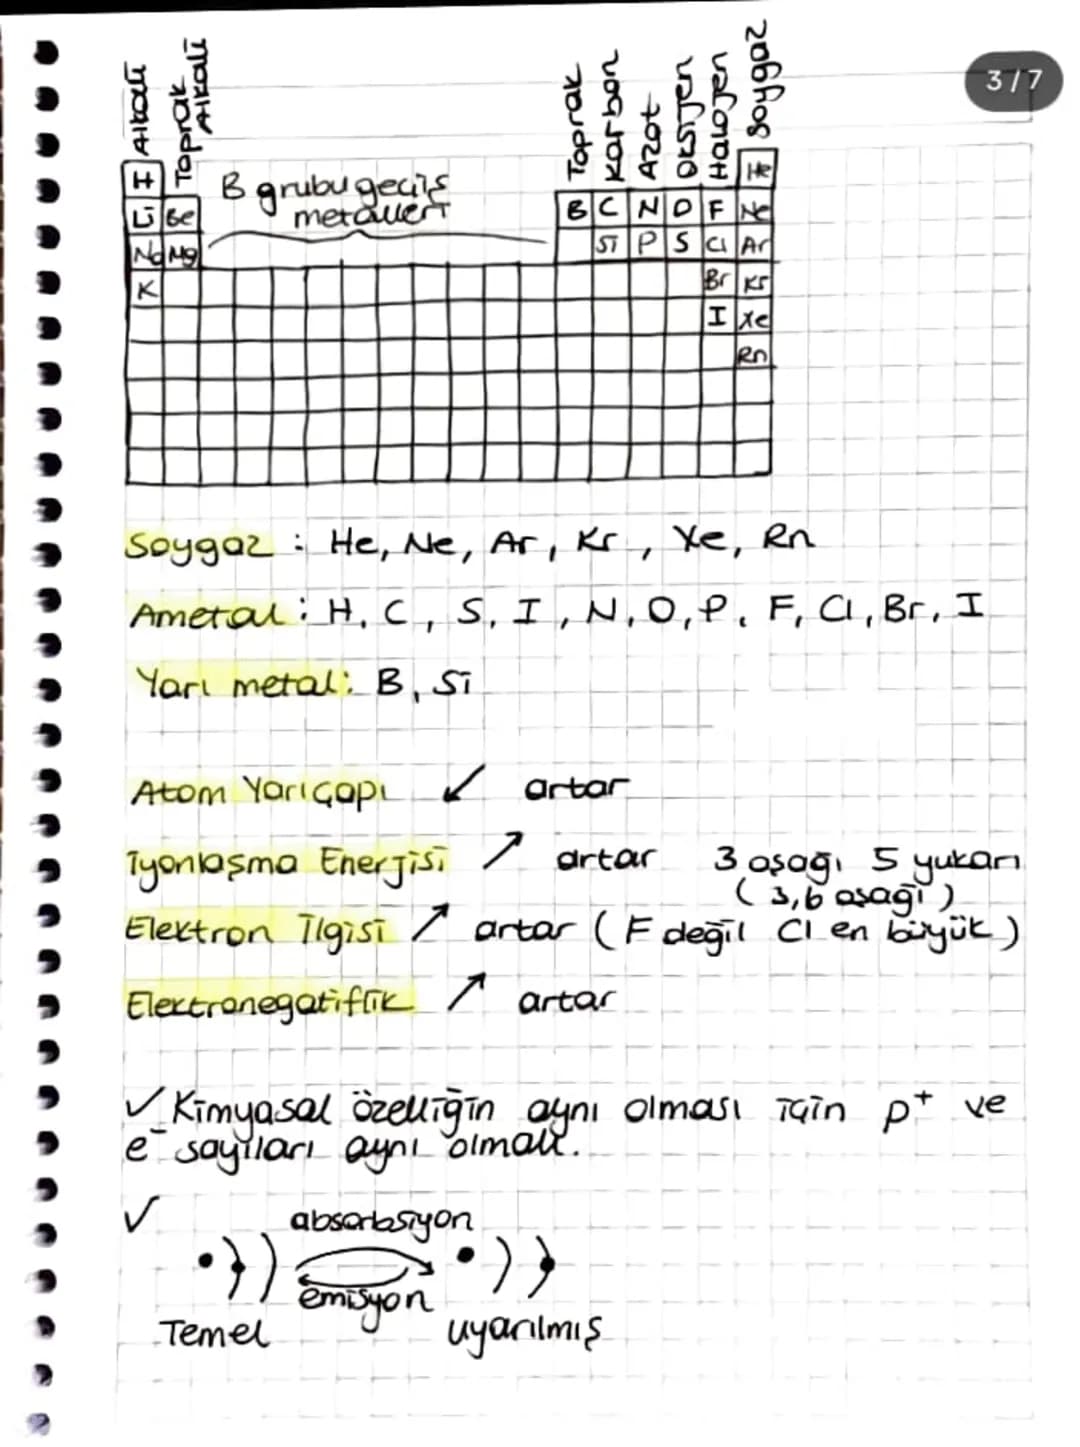 3/7
Alkali
Toprak Alkali
Toprak
Karbon
Azot
Oksijen
Halojen
Soygaz
H He
Li Be B C N O F Ne
Na Mg Si P S Cl Ar
K Br Kr
I Xe
Rn
B grubu geçiş
metalleri
Soygaz : He, Ne, Ar, Kr, Xe, Rn
Ametal : H, C, S, I, N, O, P, F, Cl, Br, I
Yarı metal: B, Si
Atom Yarıçapı ↙ artar
İyonlaşma Enerjisi ↗ artar 3 aşağı 5 yukarı
(3,6 aşağı)
Elektron İlgisi ↗ artar (F değil Cl en büyük)
Elektronegatiflik ↗ artar
✓ Kimyasal özelliğin aynı olması için p⁺ ve
e⁻ sayıları aynı olmalı.
✓
absorbsiyon
emisyon
Temel uyarılmış